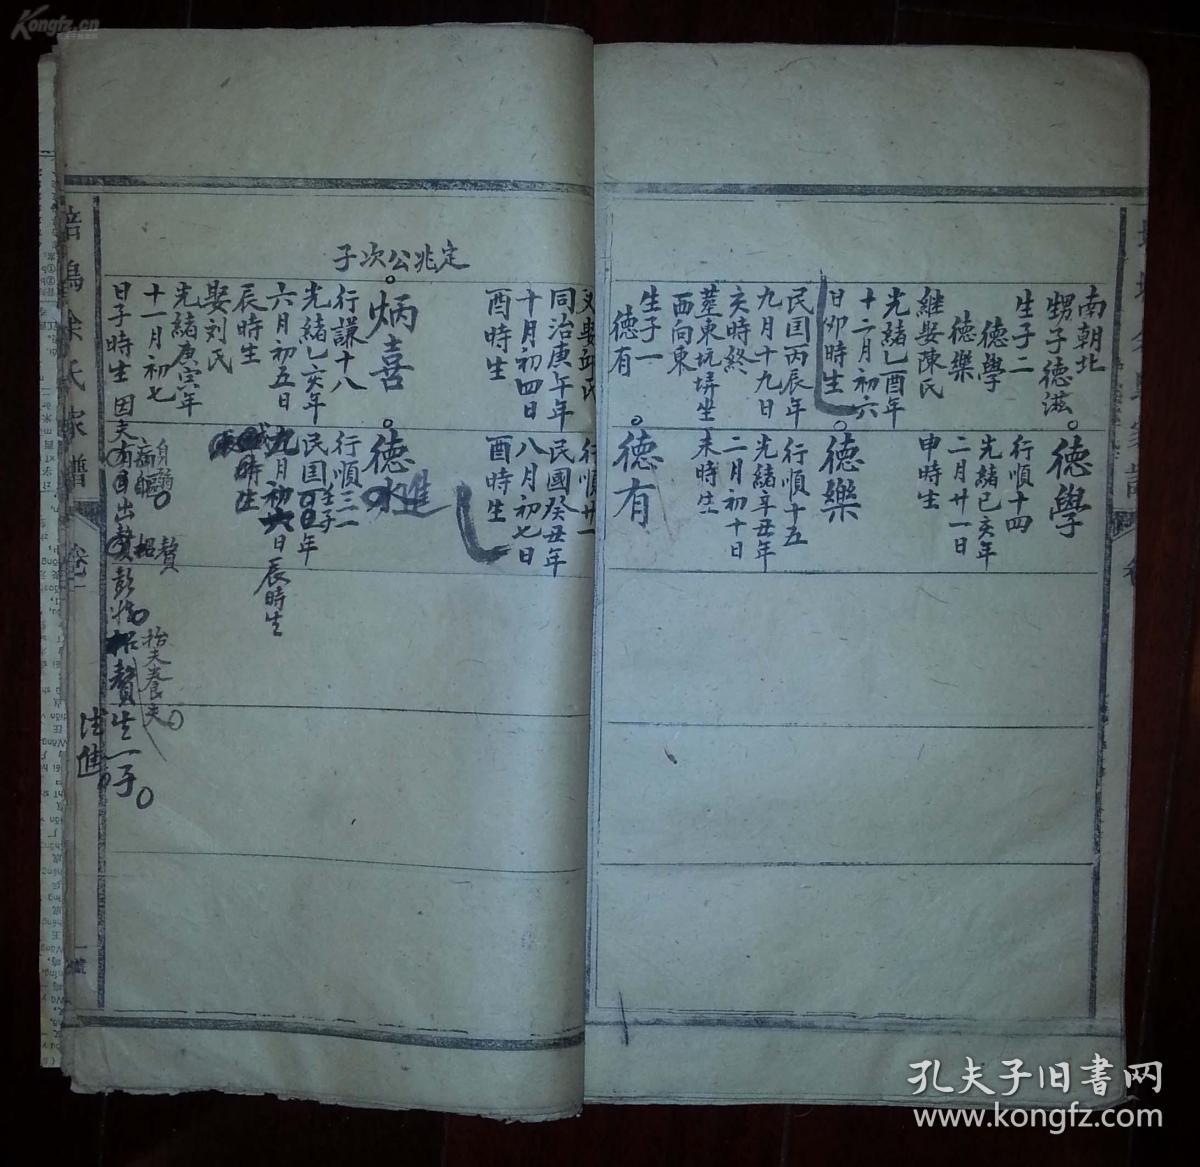 南朝北
甥子德滋
生子二
德學
德樂
繼娶陳氏
光緒乙酉年
十二月初六
日卯時生
民国丙辰年
九月十九日
亥時終
塟東坑塝坐
西向東
生子一
德有
德學
行順十四
光緒己亥年
二月廿一日
申時生
德樂
行順十五
光緒辛丑年
二月初十日
未時生
德有
定兆公次子
同治庚午年
十月初四日
酉時生
炳喜
行謙十八
光緒乙亥年
六月初五日
辰時生
娶刘氏
光緒庚寅年
十一月初七
日子時生
行順廿一
民國癸丑年
八月初七日
酉時生
德進
行順三一
民国壬子年
九月初六日辰時生
抬夫養夫
招贅生一子
余氏家譜
Kongfz.cn
孔夫子旧书网
www.kongfz.com